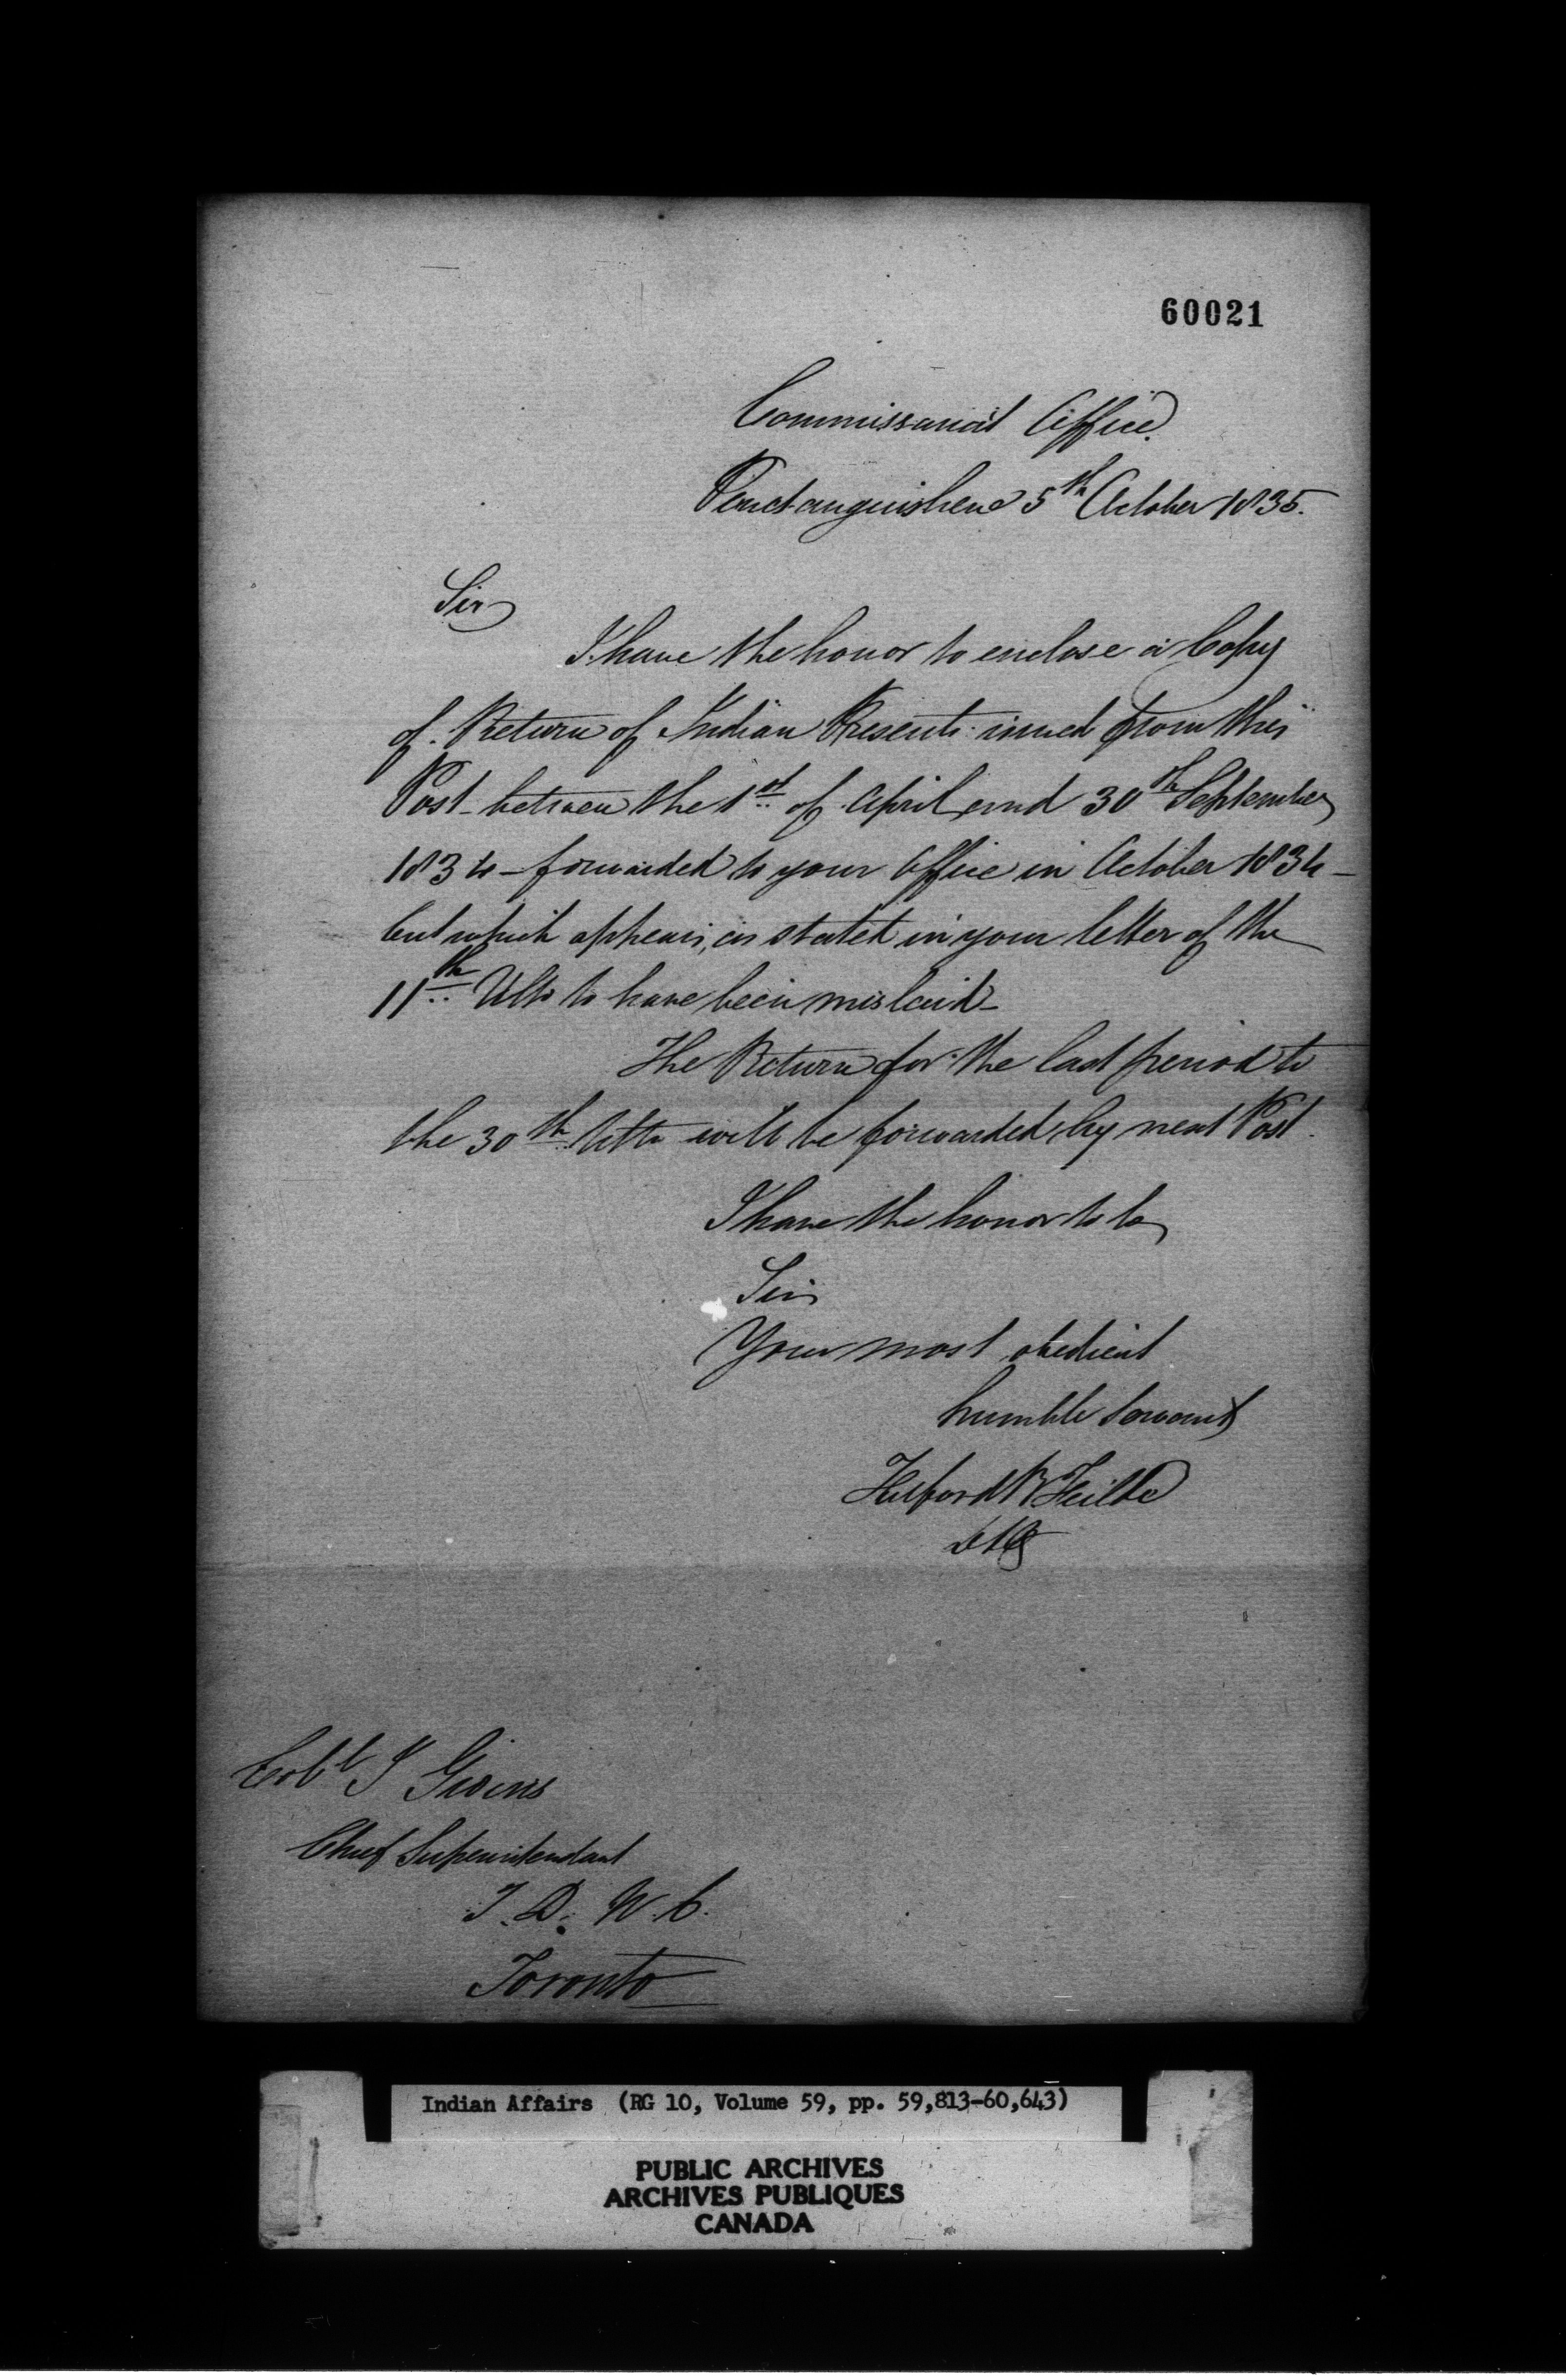 60021
Commissariat Office
Penetanguishene 5th October 1835.
Sir
I have the honor to enclose a Copy
of Return of Indian Presents issued from this
Post between the 1st of April and 30th September
1834 - forwarded to your Office in October 1834 -
but which appears, as stated in your letter of the
11th Ulto to have been mislaid -
The Return for the last period to
the 30th Ulto will be forwarded by next Post.
I have the honor to be
Sir
Your most obedient
humble Servant
Coll J Givins
Chief Superintendant
I. D. U. C.
Toronto
Indian Affairs (RG 10, Volume 59, pp. 59,813-60,643)
PUBLIC ARCHIVES
ARCHIVES PUBLIQUES
CANADA